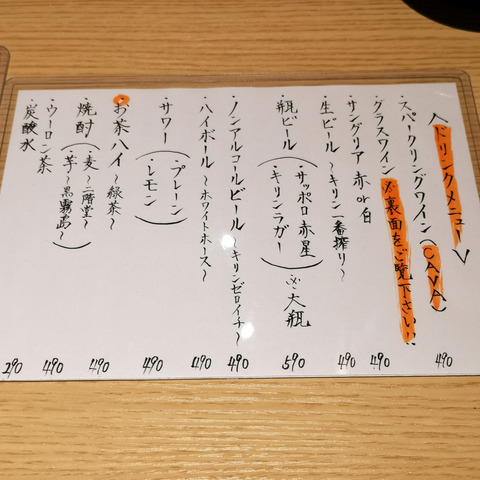 <ドリンクメニュー>
・スパークリングワイン(CAVA)
・グラスワイン ※裏面をご覧下さい!!
・サングリア 赤or白
・生ビール〜キリン一番搾り〜
・瓶ビール(・サッポロ赤星
・キリンラガー)※大瓶
・ノンアルコールビール〜キリンゼロイチ〜
・ハイボール〜ホワイトホース〜
・サワー(・プレーン
・レモン)
・お茶ハイ〜緑茶〜
・焼酎(・麦〜二階堂〜
・芋〜黒霧島〜)
・ウーロン茶
・炭酸水
490
490
490
590
490
490
490
490
490
290